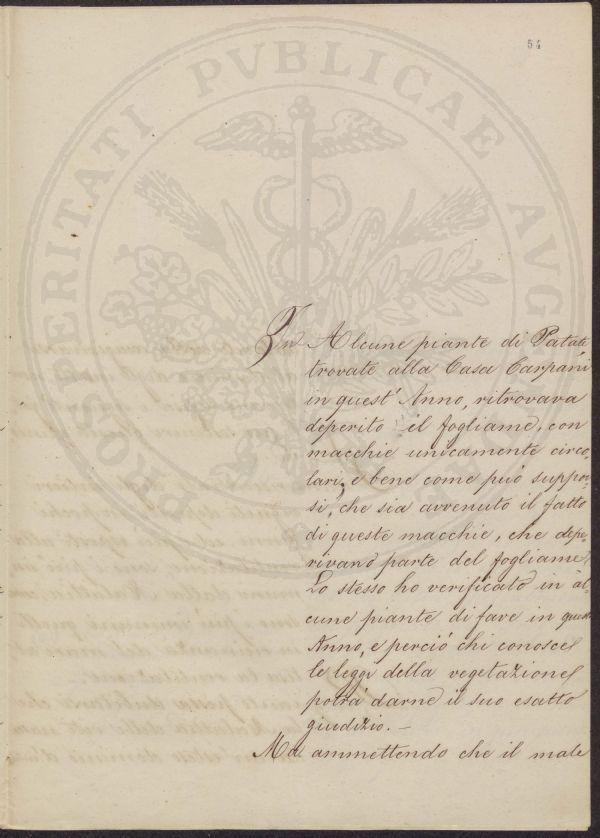 54
PROSPERITATI PVBLICAE AVG
In Alcune piante di Patate
trovate alla Casa Carpani
in quest' Anno, ritrovava
deperito il fogliame, con
macchie unicamente circo,
lari, e bene come può suppor,
si, che sia avvenuto il fatto
di queste macchie, che depe,
rivano parte del fogliame?
Lo stesso ho verificato in al,
cune piante di fave in questo
Anno, e perciò chi conosce
le leggi della vegetazione
potrà darne il suo esatto
giudizio. —
Ma ammettendo che il male